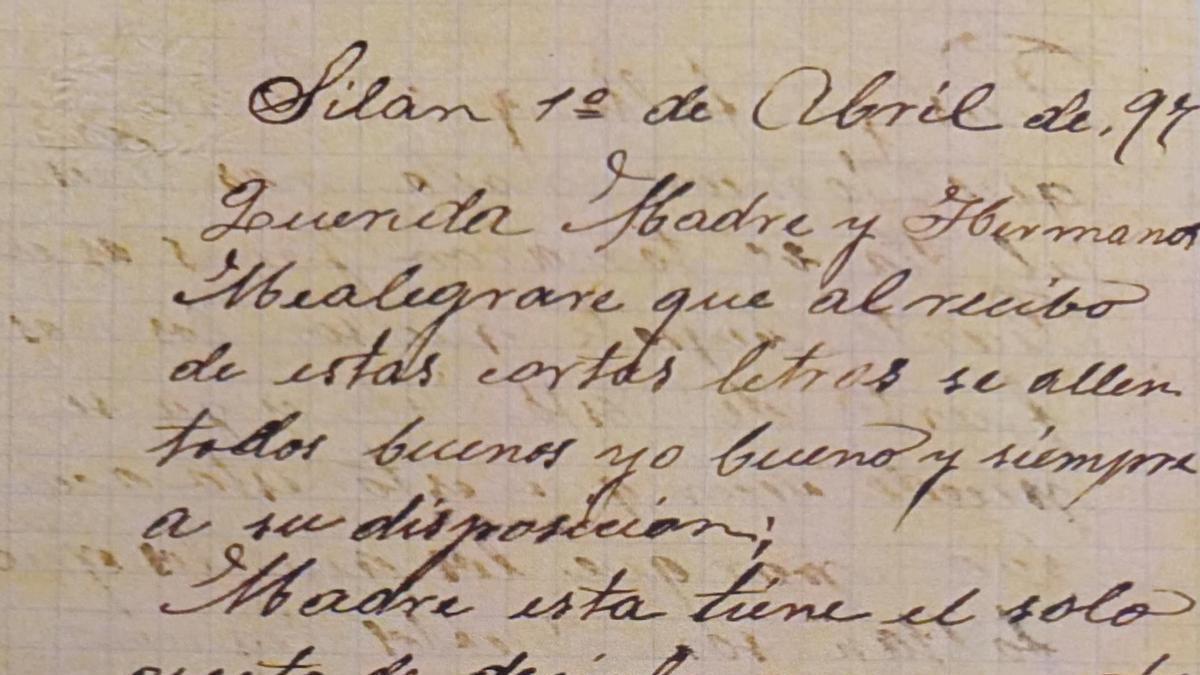 Silan 1º de Abril de, 97
Querida Madre y Hermanos
Mealegrare que al recibo
de estas cortas letras se allen
todos buenos yo bueno y siempre
a su disposicion;
Madre esta tiene el solo